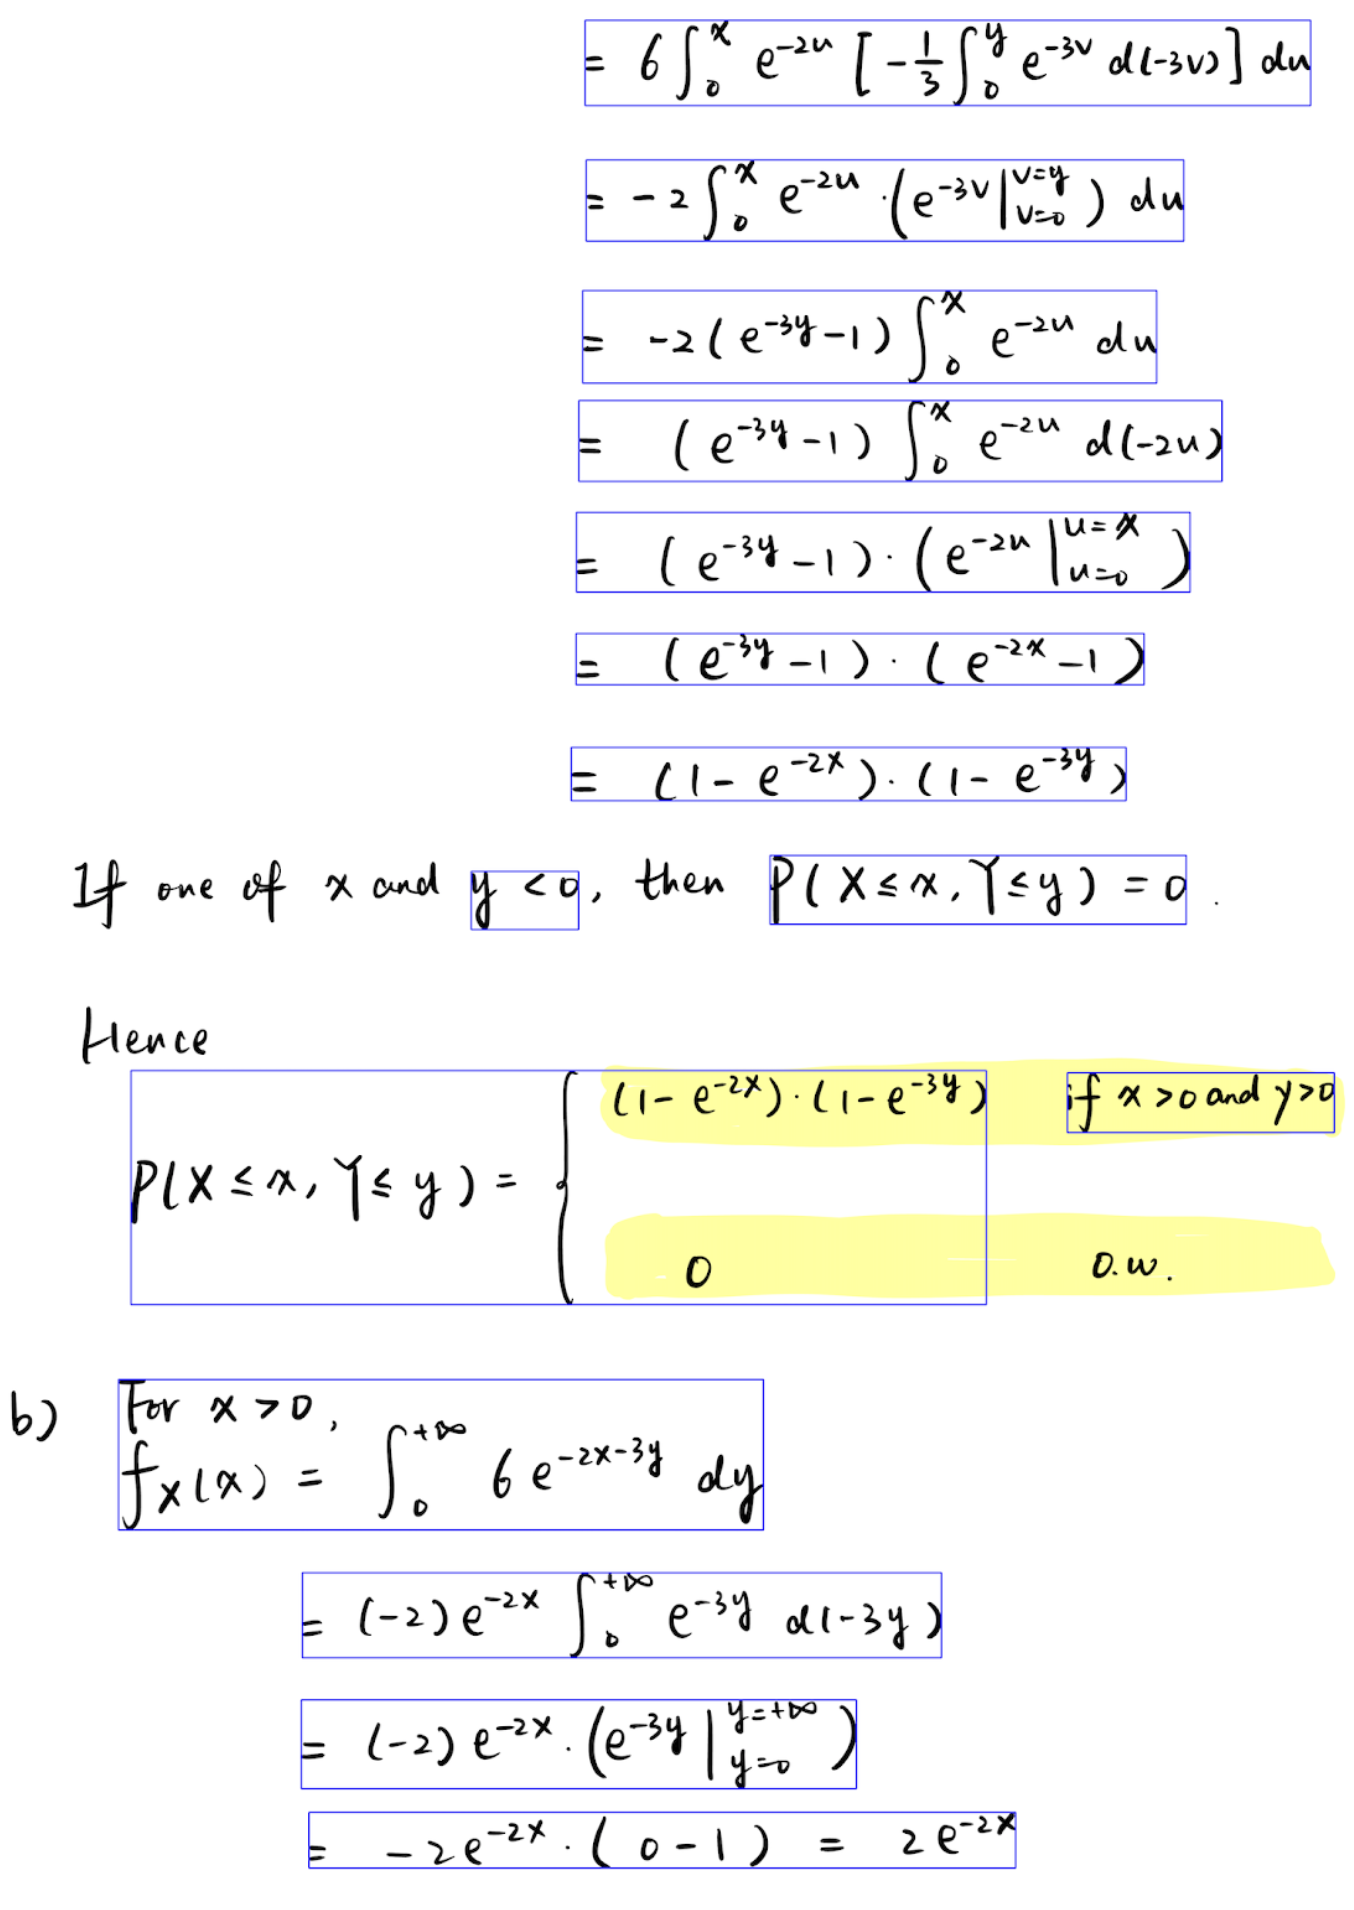 = 6 ∫₀ˣ e^{-2u} [ -1/3 ∫₀ʸ e^{-3v} d(-3v) ] du
= -2 ∫₀ˣ e^{-2u} · ( e^{-3v} |_{v=0}^{v=y} ) du
= -2 ( e^{-3y} - 1 ) ∫₀ˣ e^{-2u} du
= ( e^{-3y} - 1 ) ∫₀ˣ e^{-2u} d(-2u)
= ( e^{-3y} - 1 ) · ( e^{-2u} |_{u=0}^{u=x} )
= ( e^{-3y} - 1 ) · ( e^{-2x} - 1 )
= ( 1 - e^{-2x} ) · ( 1 - e^{-3y} )
If one of x and y < 0, then P( X ≤ x, Y ≤ y ) = 0 .
Hence
P( X ≤ x, Y ≤ y ) = { ( 1 - e^{-2x} ) · ( 1 - e^{-3y} ) if x > 0 and y > 0
0 o.w.
b) For x > 0,
f_X(x) = ∫₀^{+∞} 6 e^{-2x-3y} dy
= (-2) e^{-2x} ∫₀^{+∞} e^{-3y} d(-3y)
= (-2) e^{-2x} · ( e^{-3y} |_{y=0}^{y=+∞} )
= -2 e^{-2x} · ( 0 - 1 ) = 2 e^{-2x}